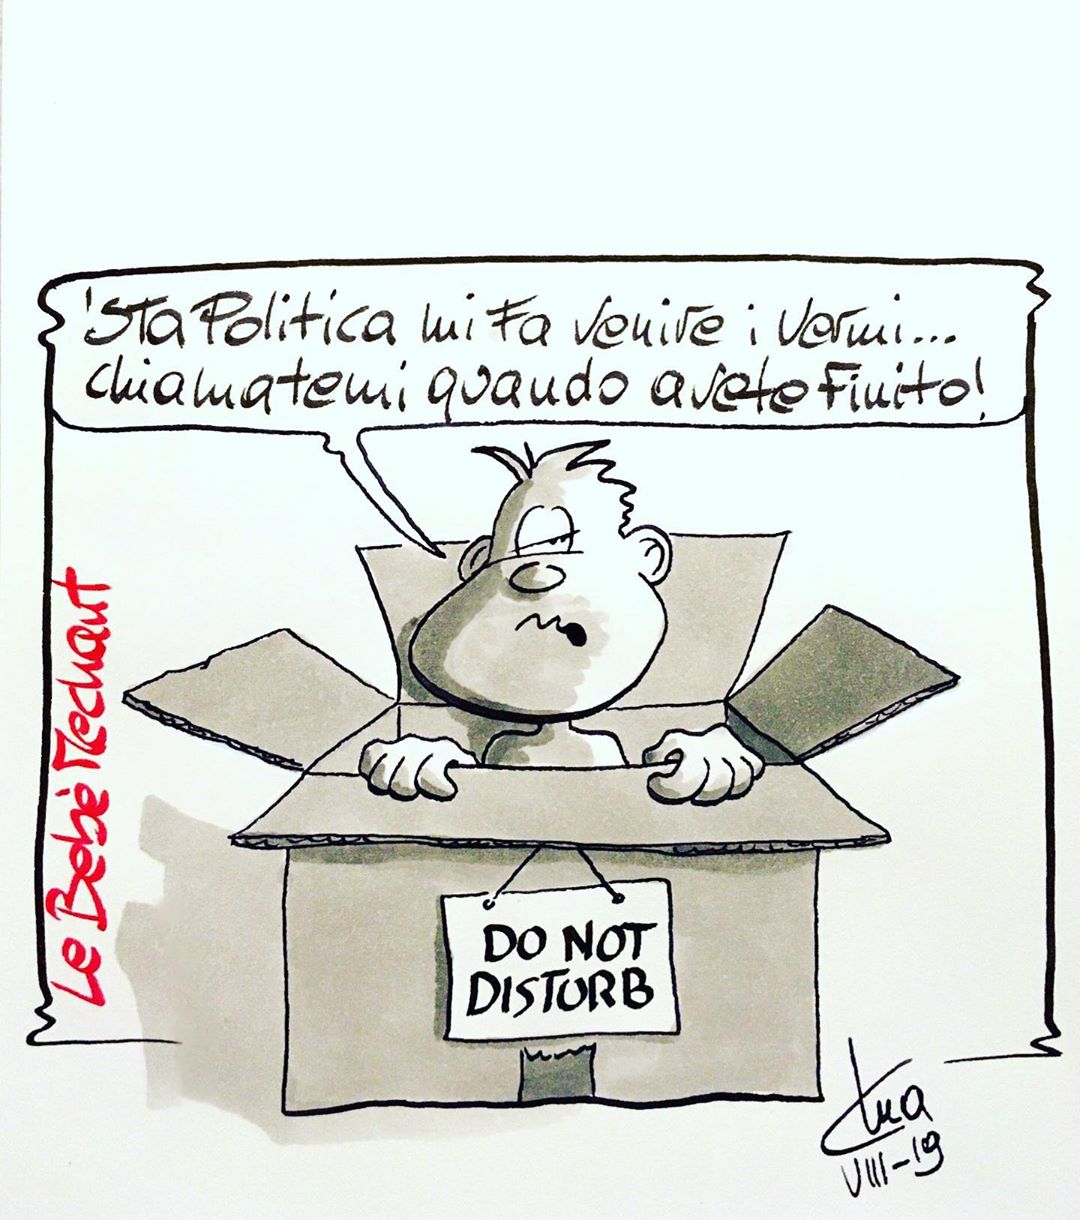 'Sta Politica mi fa venire i vermi...
chiamatemi quando avete finito!
Le Bebè Mechant
DO NOT
DISTURB
VIII-19